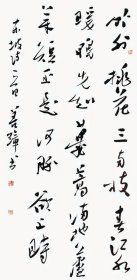 竹外桃花三两枝春江水
暖鸭先知蒌蒿满地芦
芽短正是河豚欲上时
东坡诗一首 善璋书